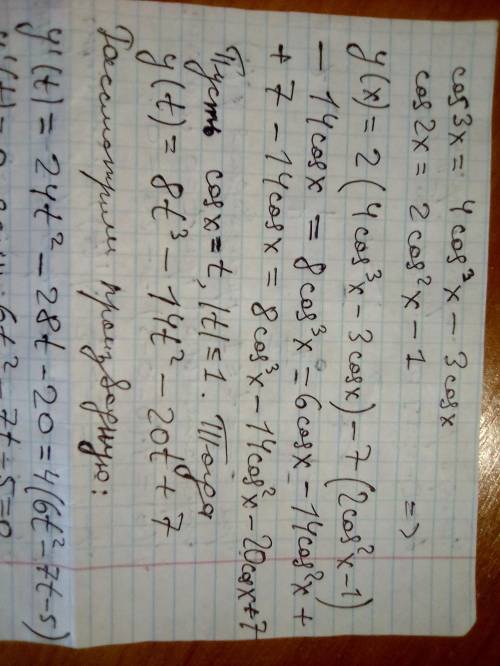 cos3x = 4cos³x - 3cosx
cos2x = 2cos²x - 1 =>
y(x) = 2(4cos³x - 3cosx) - 7(2cos²x - 1)
- 14cosx = 8cos³x = 6cosx - 14cos²x +
+ 7 - 14cosx = 8cos³x - 14cos²x - 20cosx + 7
Пусть cosx = t, |t| = 1. Тогда
y(t) = 8t³ - 14t² - 20t + 7
Рассмотрим производную:
y'(t) = 24t² - 28t - 20 = 4(6t² - 7t - 5)
y'(t) = 0, 6t² - 7t - 5 = 0